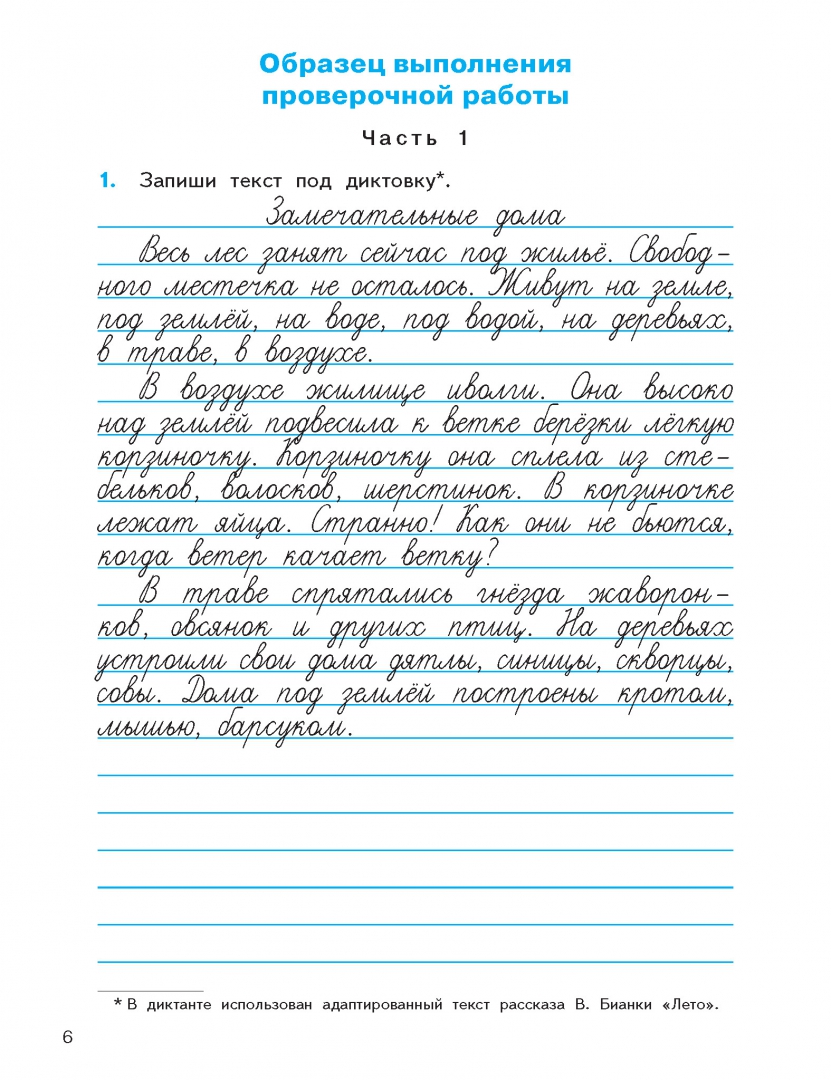 Образец выполнения
проверочной работы
Часть 1
1. Запиши текст под диктовку*.
Замечательные дома
Весь лес занят сейчас под жильё. Свобод-
ного местечка не осталось. Живут на земле,
под землёй, на воде, под водой, на деревьях,
в траве, в воздухе.
В воздухе жилище иволги. Она высоко
над землёй подвесила к ветке берёзки лёгкую
корзиночку. Корзиночку она сплела из сте-
бельков, волосков, шерстинок. В корзиночке
лежат яйца. Странно! Как они не бьются,
когда ветер качает ветку?
В траве спрятались гнёзда жаворон-
ков, овсянок и других птиц. На деревьях
устроили свои дома дятлы, синицы, скворцы,
совы. Дома под землёй построены кротом,
мышью, барсуком.
* В диктанте использован адаптированный текст рассказа В. Бианки «Лето».
6